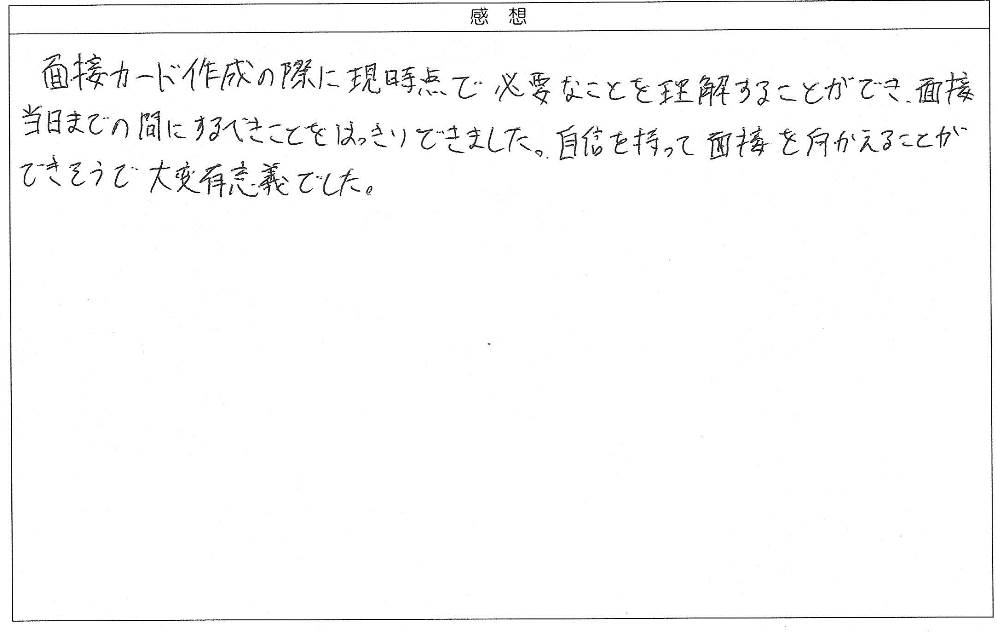 感想
面接カード作成の際に現時点で必要なことを理解することができ、面接
当日までの間にするべきことをはっきりできました。自信を持って面接を向かえることが
できそうで大変有意義でした。